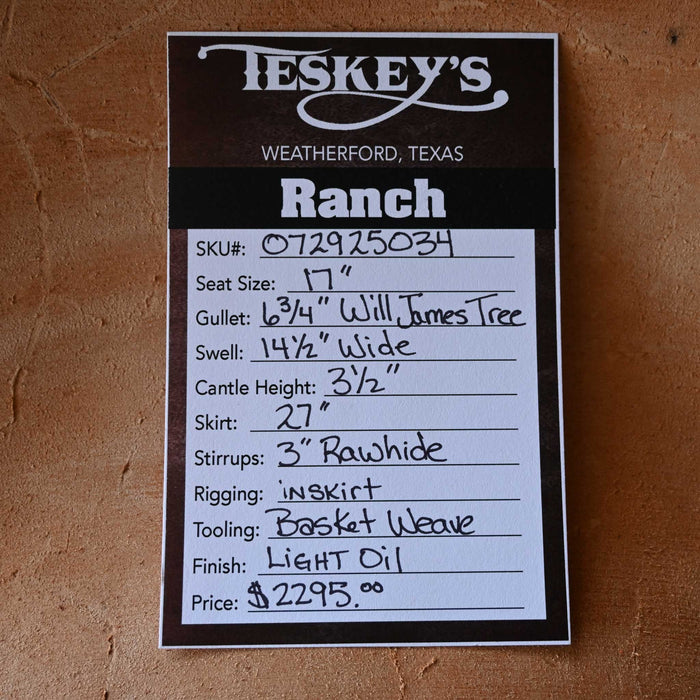 TESKEY'S
WEATHERFORD, TEXAS
Ranch
SKU#: 072925034
Seat Size: 17"
Gullet: 6 3/4" Will James Tree
Swell: 14 1/2" Wide
Cantle Height: 3 1/2"
Skirt: 27"
Stirrups: 3" Rawhide
Rigging: inskirt
Tooling: Basket Weave
Finish: LIGHT Oil
Price: $2295.00